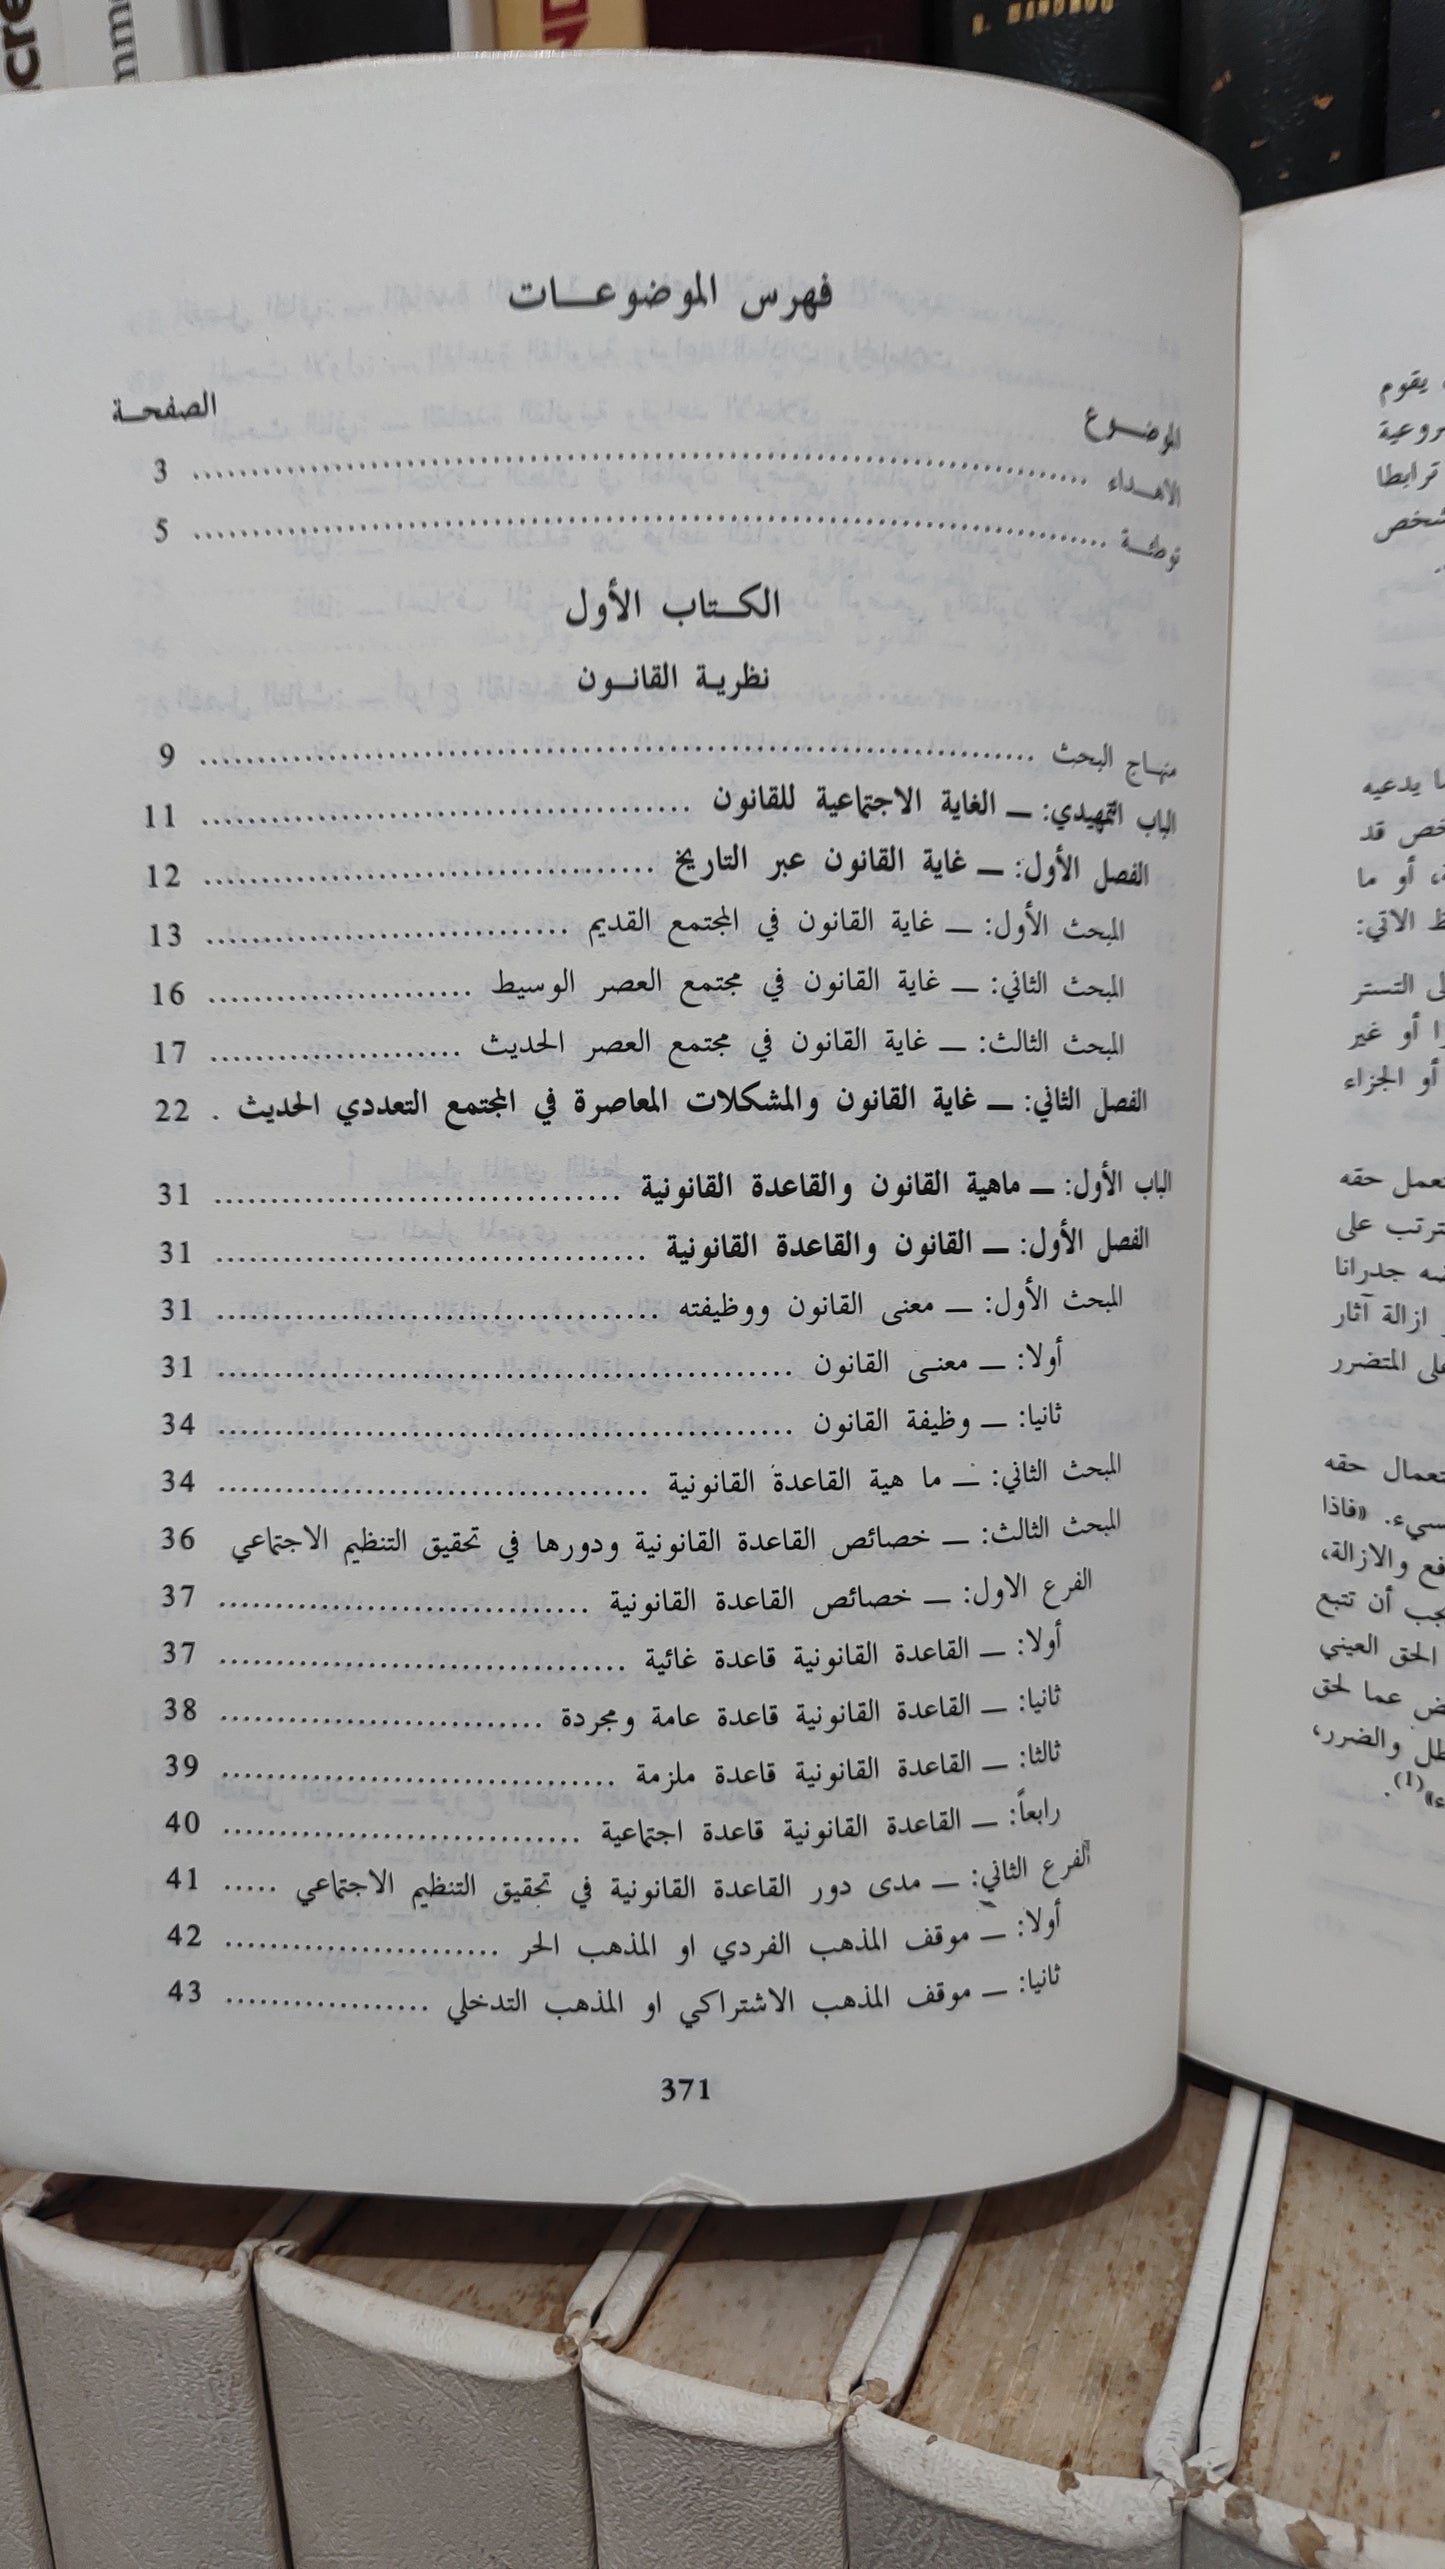 فهرس الموضوعــات
الموضــوع الصفحـة
الاهـداء 3
توطئـة 5
الكـتاب الأول
نظريـة القانـون
منهـاج البحث 9
الباب التمهيدي: ــ الغاية الاجتماعية للقانون 11
الفصل الأول: ــ غاية القانون عبر التاريخ 12
المبحث الأول: ــ غاية القانون في المجتمع القديم 13
المبحث الثاني: ــ غاية القانون في مجتمع العصر الوسيط 16
المبحث الثالث: ــ غاية القانون في مجتمع العصر الحديث 17
الفصل الثاني: ــ غاية القانون والمشكلات المعاصرة في المجتمع التعددي الحديث . 22
الباب الأول: ــ ماهية القانون والقاعدة القانونية 31
الفصل الأول: ــ القانون والقاعدة القانونية 31
المبحث الأول: ــ معنى القانون ووظيفته 31
أولا: ــ معنـى القانون 31
ثانيا: ــ وظيفة القانون 34
المبحث الثاني: ــ ما هية القاعدة القانونية 34
المبحث الثالث: ــ خصائص القاعدة القانونية ودورها في تحقيق التنظيم الاجتماعي 36
الفرع الاول: ــ خصائص القاعدة القانونية 37
أولا: ــ القاعدة القانونية قاعدة غائية 37
ثانيا: ــ القاعدة القانونية قاعدة عامة ومجردة 38
ثالثا: ــ القاعدة القانونية قاعدة ملزمة 39
رابعاً: ــ القاعدة القانونية قاعدة اجتماعية 40
الفرع الثاني: ــ مدى دور القاعدة القانونية في تحقيق التنظيم الاجتماعي 41
أولا: ــ موقف المذهب الفردي او المذهب الحر 42
ثانيا: ــ موقف المذهب الاشتراكي او المذهب التدخلي 43
371
يقوم
ترابطا
يدعيه
قد
أو ما
الاتي:
التستر
أو غير
أو الجزاء
حقه
على
جدرانا
ازالة آثار
المتضرر
حقه
«فاذا
والازالة،
أن تتبع
الحق العيني
عما لحق
والضرر،
(1).